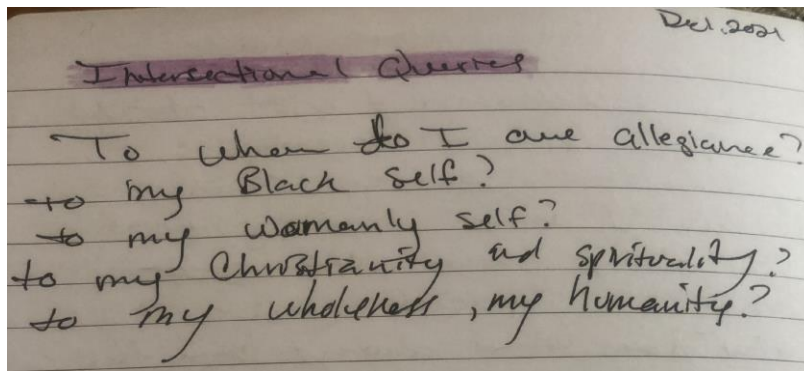 Dec. 2021
Intersectional Queries
To whom do I owe allegiance?
to my Black self?
to my womanly self?
to my Christianity and spirituality?
to my wholeness, my humanity?